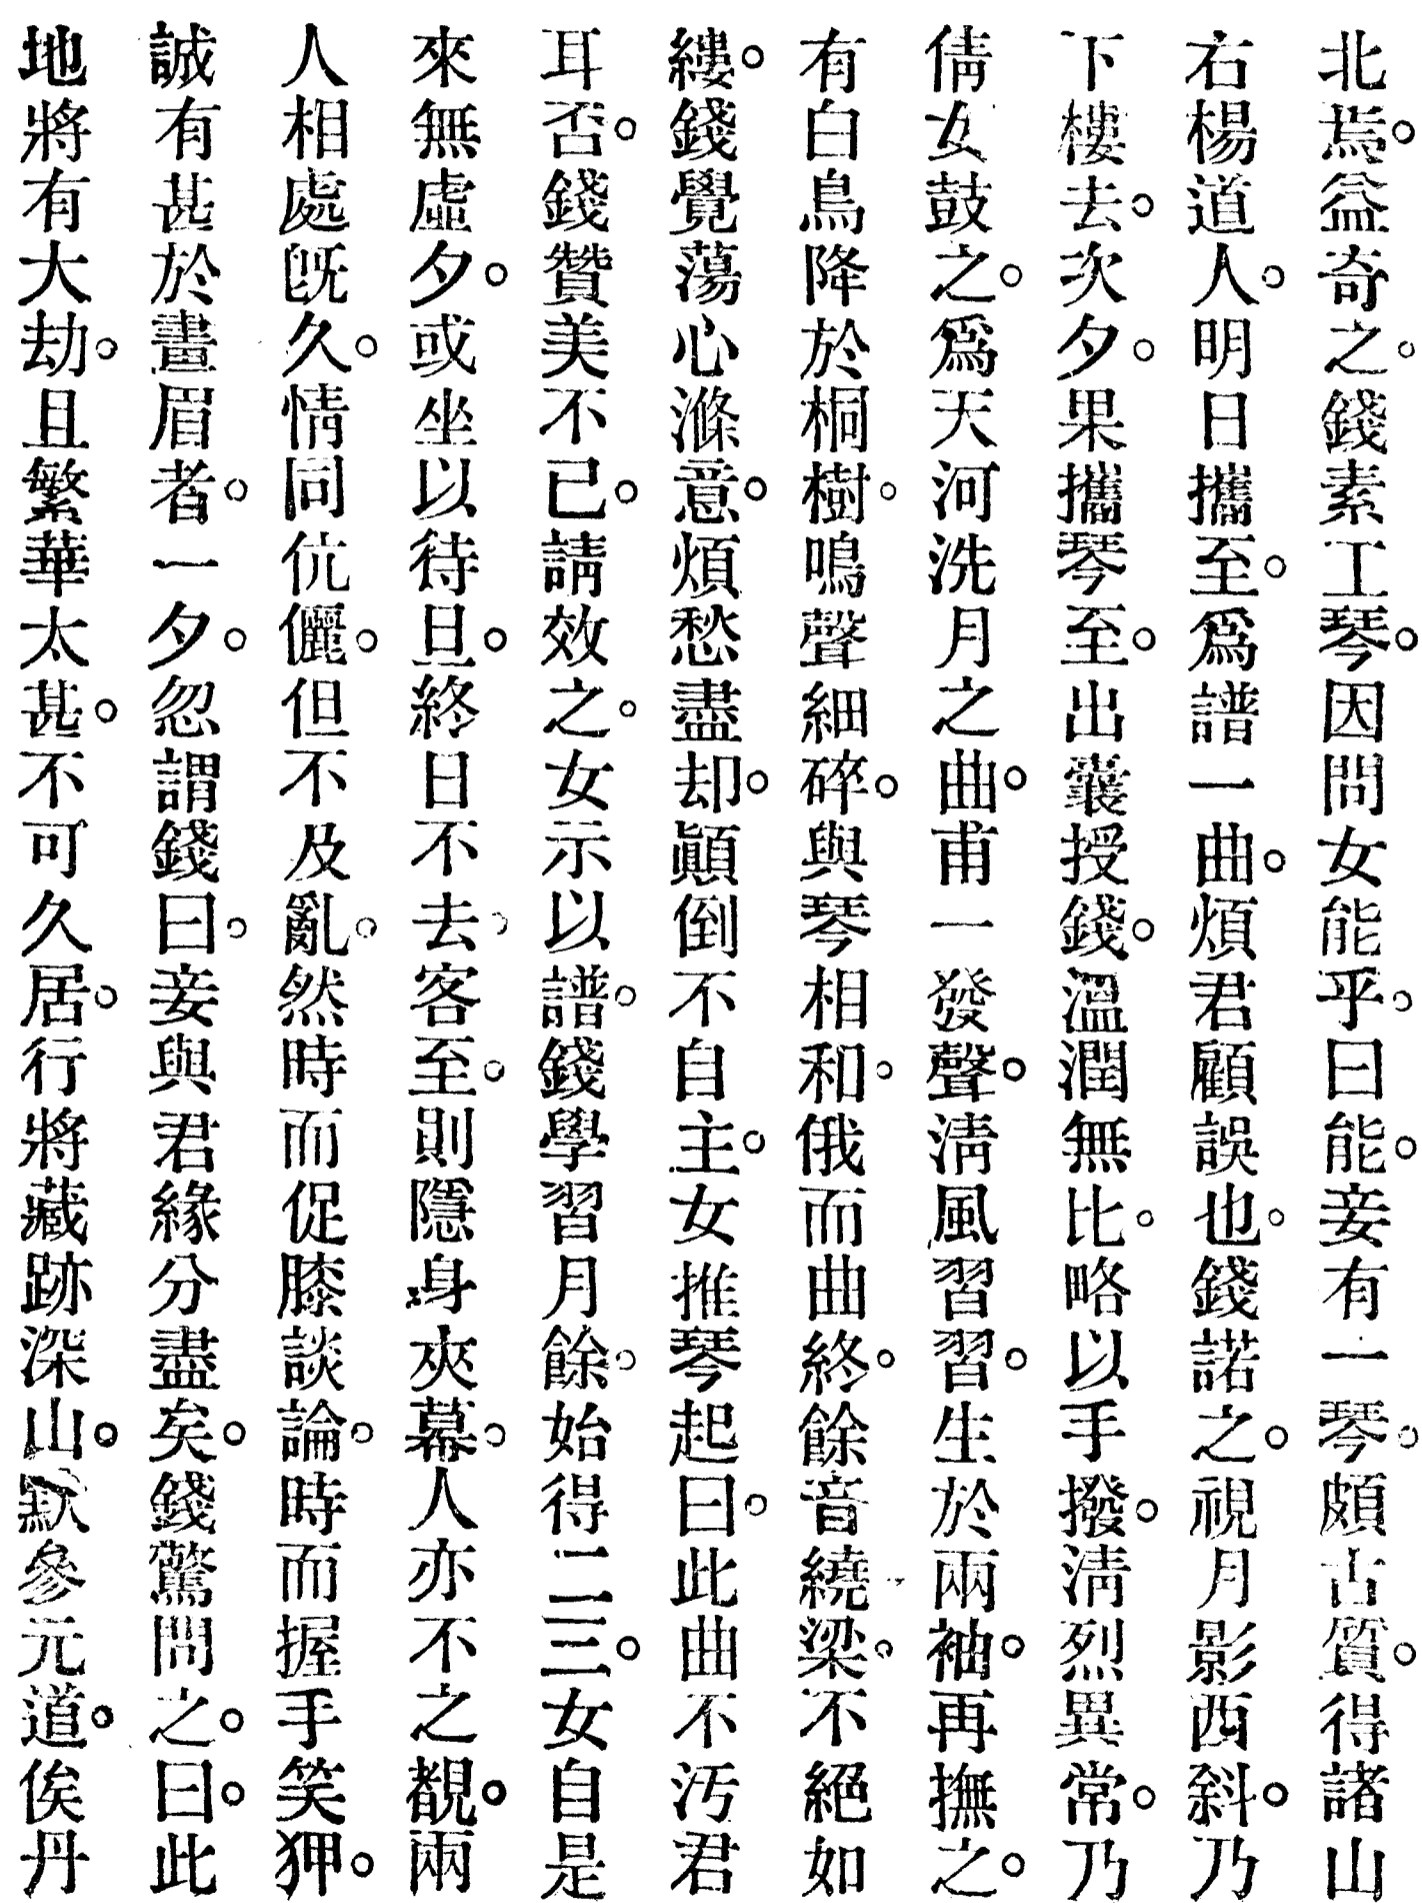 北焉。益奇之。錢素工琴。因問女能乎。曰能。妾有一琴。頗古質。得諸山
右楊道人。明日攜至。爲譜一曲。煩君顧誤也。錢諾之。視月影西斜。乃
下樓去。次夕。果攜琴至。出囊授錢。溫潤無比。略以手撥。淸烈異常。乃
倩女鼓之。爲天河洗月之曲。甫一發聲。淸風習習。生於兩袖。再撫之。
有白鳥降於桐樹。鳴聲細碎。與琴相和。俄而曲終。餘音繞梁。不絕如
縷。錢覺蕩心滌意。煩愁盡却。顚倒不自主。女推琴起曰。此曲不汚君
耳否。錢贊美不已。請效之。女示以譜。錢學習月餘。始得二三。女自是
來無虛夕。或坐以待旦。終日不去。客至。則隱身夾幕。人亦不之覩。兩
人相處旣久。情同伉儷。但不及亂。然時而促膝談論。時而握手笑狎。
誠有甚於畫眉者。一夕。忽謂錢曰。妾與君緣分盡矣。錢驚問之。曰。此
地將有大劫。且繁華太甚。不可久居。行將藏跡深山。默參元道。俟丹